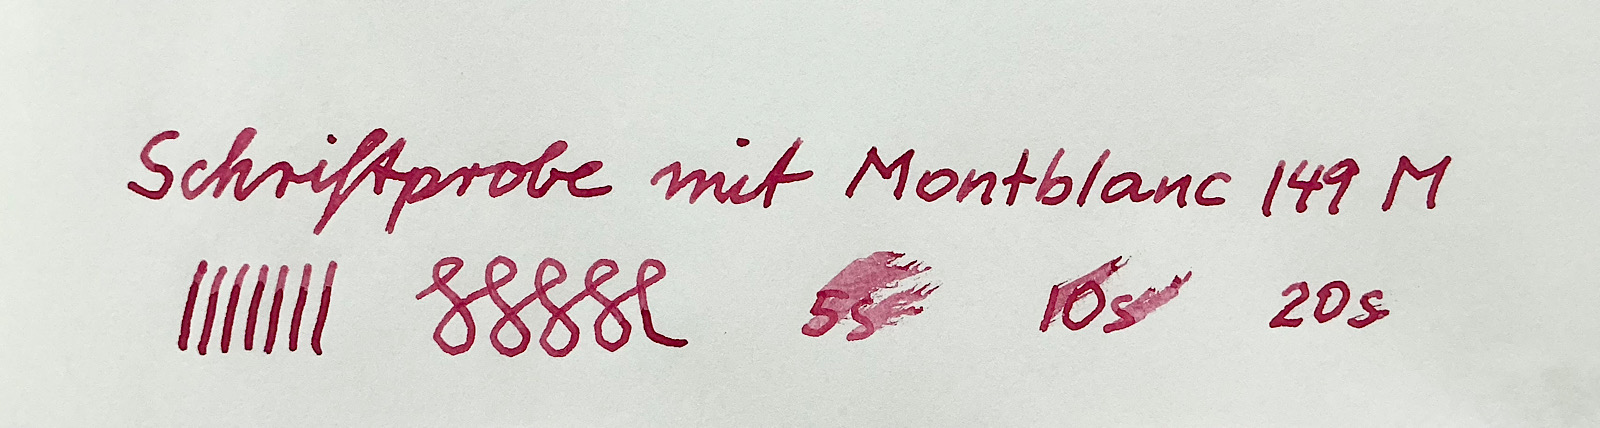 Schriftprobe mit Montblanc 149 M
5s 10s 20s